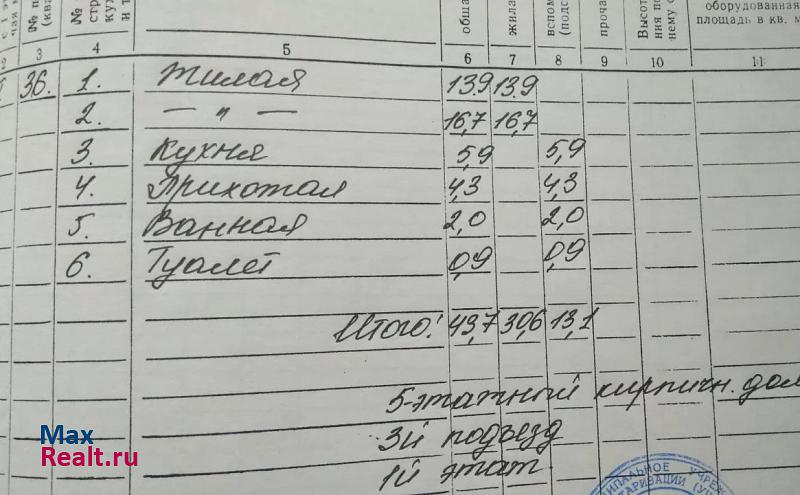 общая
жилая
вспом
(подс
проча
Высот
ния по
нему о
оборудованная
площадь в кв. м
3 4 5 6 7 8 9 10 11
36. 1. Жилая 13.9 13.9
2. — „ — 16,7 16,7
3. Кухня 5,9 5,9
4. Прихожая 4,3 4,3
5. Ванная 2,0 2,0
6. Туалет 0,9 0,9
Итого: 43,7 30,6 13,1
5-этажный кирпичн. дом
3й подъезд
1й этаж
Max
Realt.ru